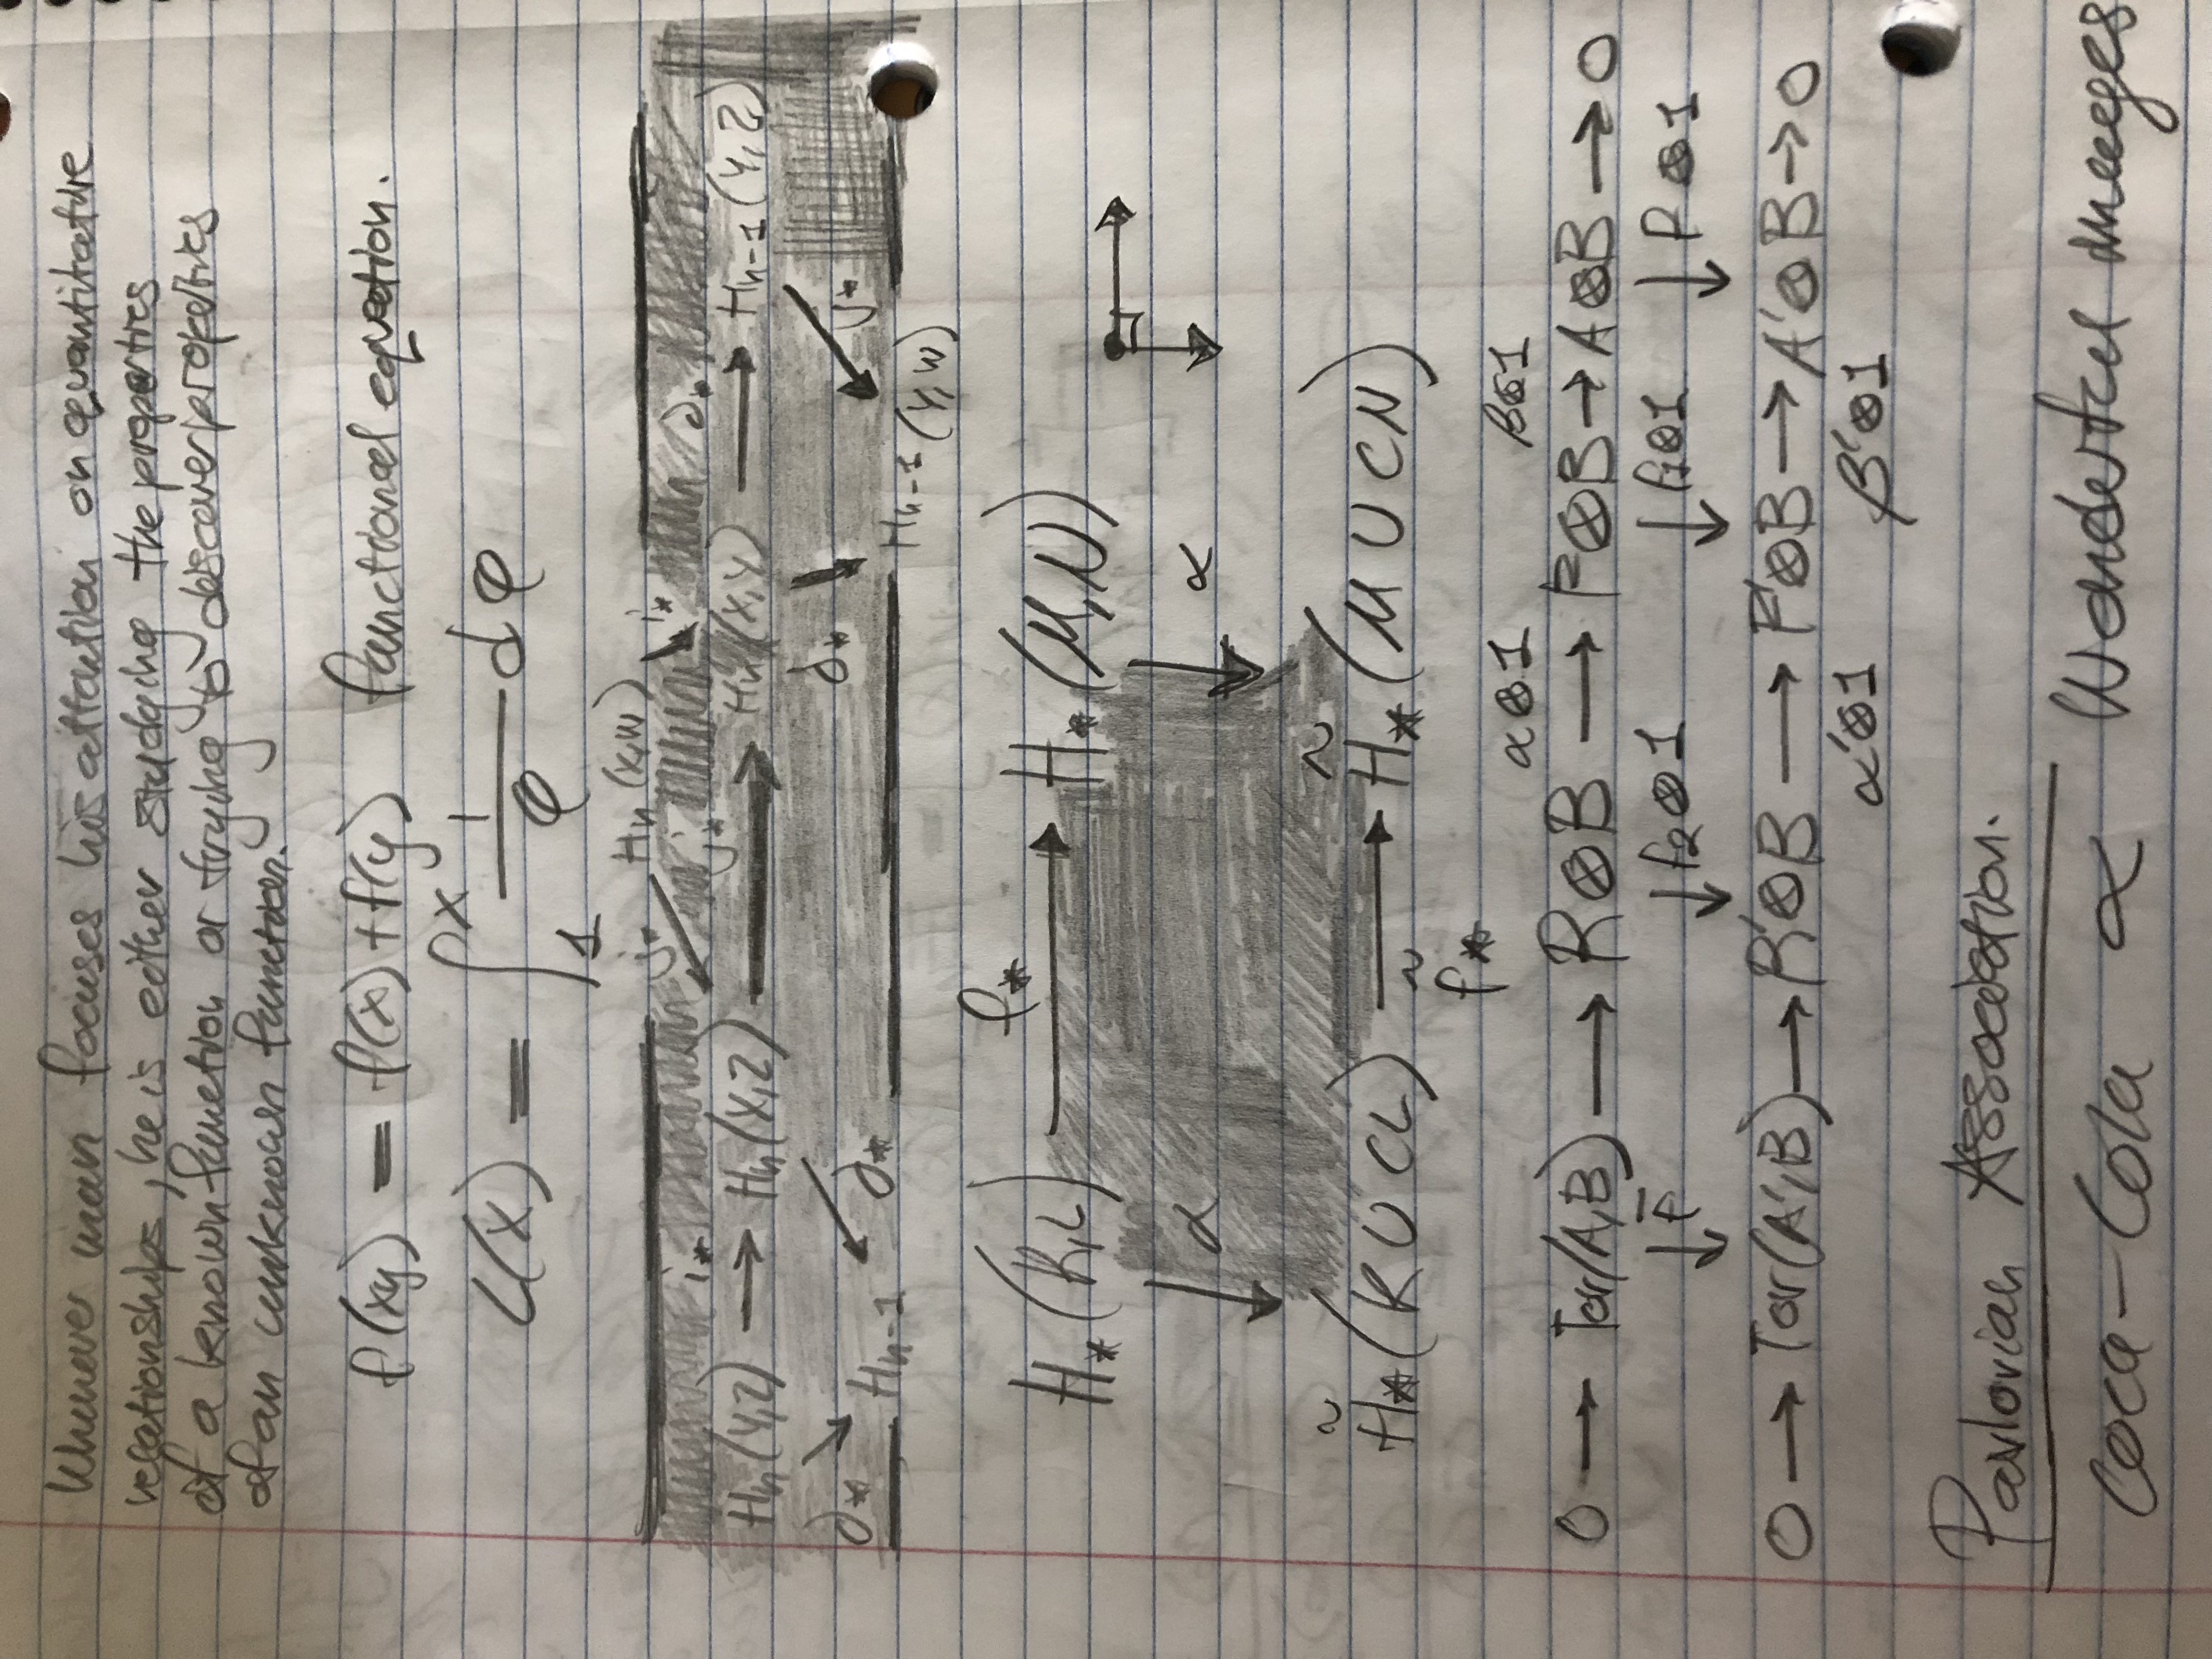 Whenever man focuses his attention on quantitative
relationships, he is either studying the properties
of a known function or trying to discover properties
of an unknown function.
f(xy) = f(x)+f(y) functional equation.
L(x) = ∫₁ˣ 1/φ dφ
j* Hn(X,W) i*
i* j* ∂*
Hn(Y,Z) → Hn(X,Z) → Hn(X,Y) → Hn-1(Y,Z)
∂* ∂* ∂* j*
Hn-1 Hn-1(Y,W)
f*
H*(K,L) → H*(M,N)
↓ α ↓ α
H̃*(K∪CL) → H̃*(M∪CN)
f̃*
α⊗1 β⊗1
0 → Tor(A,B) → R⊗B → F⊗B → A⊗B → 0
↓ f̄ ↓ f₂⊗1 ↓ f₁⊗1 ↓ f⊗1
0 → Tor(A',B) → R'⊗B → F'⊗B → A'⊗B → 0
α'⊗1 β'⊗1
Pavlovian Association.
Coca-Cola ∝ Wonderful images